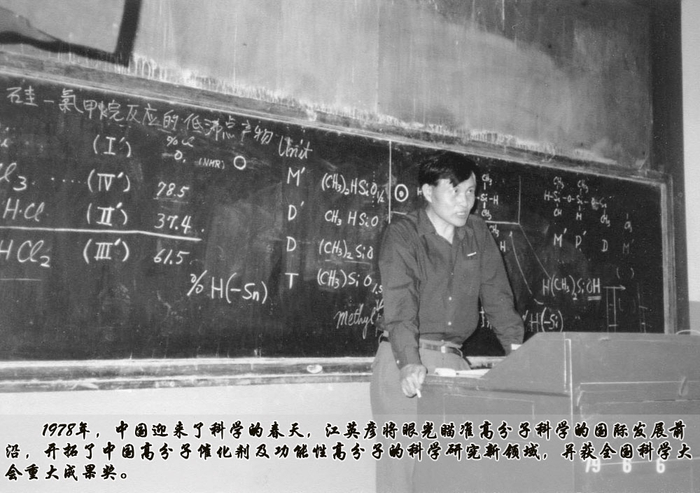 硅一氯甲烷反应的低沸点产物
(I′) % Cl
0. (NMR)
Cl3 ···· (IV′) 78.5
HCl (II′) 37.4
HCl2 (III′) 61.5
% H(-Sn)
Unit
M′ (CH3)2HSiO1/2
D′ CH3HSiO
D (CH3)2SiO
T (CH3)SiO1.5
Methyl
CH3
-Si-H
CH3
CH3 CH3
M′ D′ D M′
H(CH3)2SiOH
H(-Si)
79 6 6
1978年，中国迎来了科学的春天，江英彦将眼光瞄准高分子科学的国际发展前
沿，开拓了中国高分子催化剂及功能性高分子的科学研究新领域，并获全国科学大
会重大成果奖。